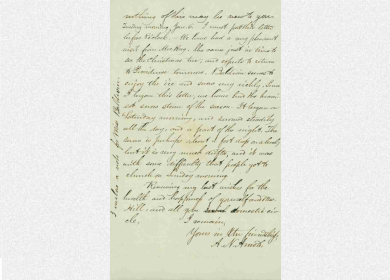 nothing of this may be new to you
Sunday morning, Jan. 6. I must put this letter
before 12 o'clock. We have had a very pleasant
visit from Mrs. Hay. She came just in time to
see the Christmas tree, and expects to return
to Providence tomorrow. Baldwin seems to
enjoy the ice and snow very highly. Since
I began this letter, we have had the heavi-
est snow storm of the season. It began on
Saturday morning, and snowed steadily
all the day, and a part of the night. The
snow is perhaps about a foot deep on a level,
but it is very much drifted, and it was
with some difficulty that people got to
church on Sunday morning.
Renewing my best wishes for the
health and happiness of yourself and Mrs.
Hill, and all your domestic cir-
cle. I remain,
Yours in true friendship,
A. N. Arnold.
I enclose a note for Miss Baldwin.